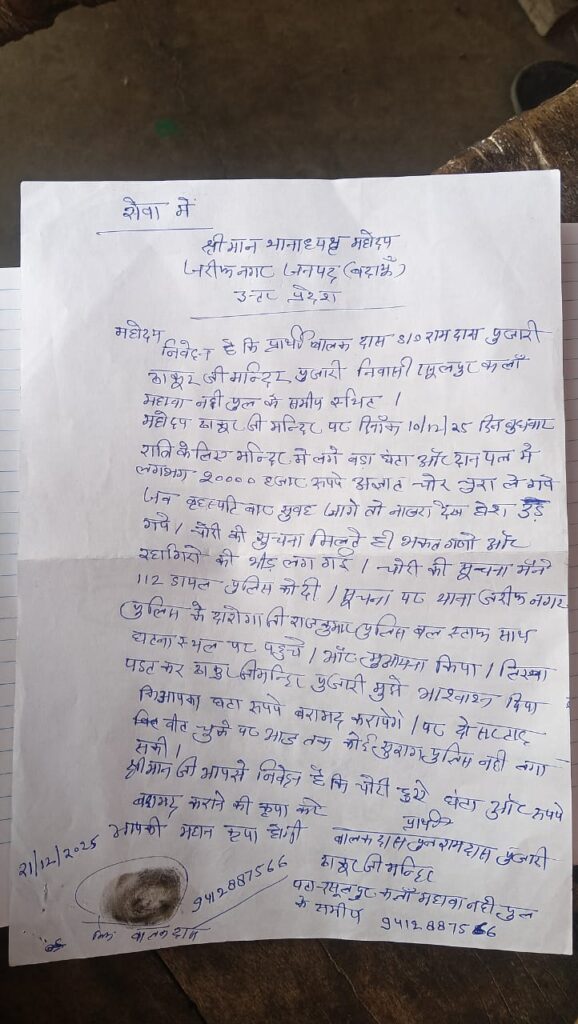 सेवा में
श्रीमान थानाध्यक्ष महोदय
जरीफनगर जनपद (बदायूँ)
उत्तर प्रदेश
महोदय
निवेदन है कि प्रार्थी बालक दास S/o रामदास पुजारी
ठाकुर जी मन्दिर पुजारी निवासी रसूलपुर कलाँ
महावा नदी पुल के समीप स्थित ।
महोदय ठाकुर जी मन्दिर पर दिनाँक 10/12/25 दिन बुधवार
रात्रि के लिए मन्दिर में लगे बडा घंटा और दान पत्र में
लगभग 20000 हजार रूपये अज्ञात चोर चुरा ले गये
जब बृहस्पति बार सुबह जागे तो नाजरा देख होश उड़
गये । चोरी की सुचना मिलते ही भक्त गणों और
राहागिरो की भीड़ लग गई । चोरी की सूचना मैंने
112 डायल पुलिस को दी । सूचना पर थाना जरीफ नगर
पुलिस के दारोगा जी राजकुमार पुलिस बल स्टाफ साथ
घटना स्थल पर पहुंचे । और मुआयना किया । लिखा
पढत कर ठाकुर जी मन्दिर पुजारी मुझे आश्वाशन दिया
कि आपका घंटा रूपये बरामद करायेगे । पर दो सप्ताह
बीत चुके पर आज तक कोई सुराग पुलिस नही लगा
सकी ।
श्रीमान जी आपसे निवेदन है कि चोरी हुये घंटा और रूपये
बरामद कराने की कृपा करें
आपकी महान कृपा होगी
प्रार्थी
बालक दास पुत्र रामदास पुजारी
ठाकुर जी मन्दिर
पता रसूलपुर कलाँ महावा नदी पुल
के समीप 9412887566
21/12/2025
9412887566
बालक दास